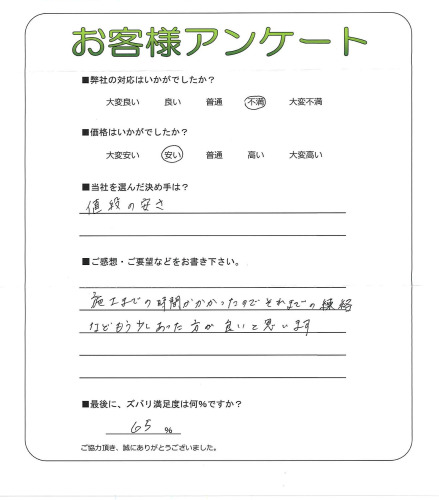 お客様アンケート
■弊社の対応はいかがでしたか？
大変良い 良い 普通 不満 大変不満
■価格はいかがでしたか？
大変安い 安い 普通 高い 大変高い
■当社を選んだ決め手は？
値段の安さ
■ご感想・ご要望などをお書き下さい。
施工までの時間がかかったのでそれまでの練絡
などもう少しあった方が良いと思います
■最後に、ズバリ満足度は何%ですか？
65 %
ご協力頂き、誠にありがとうございました。